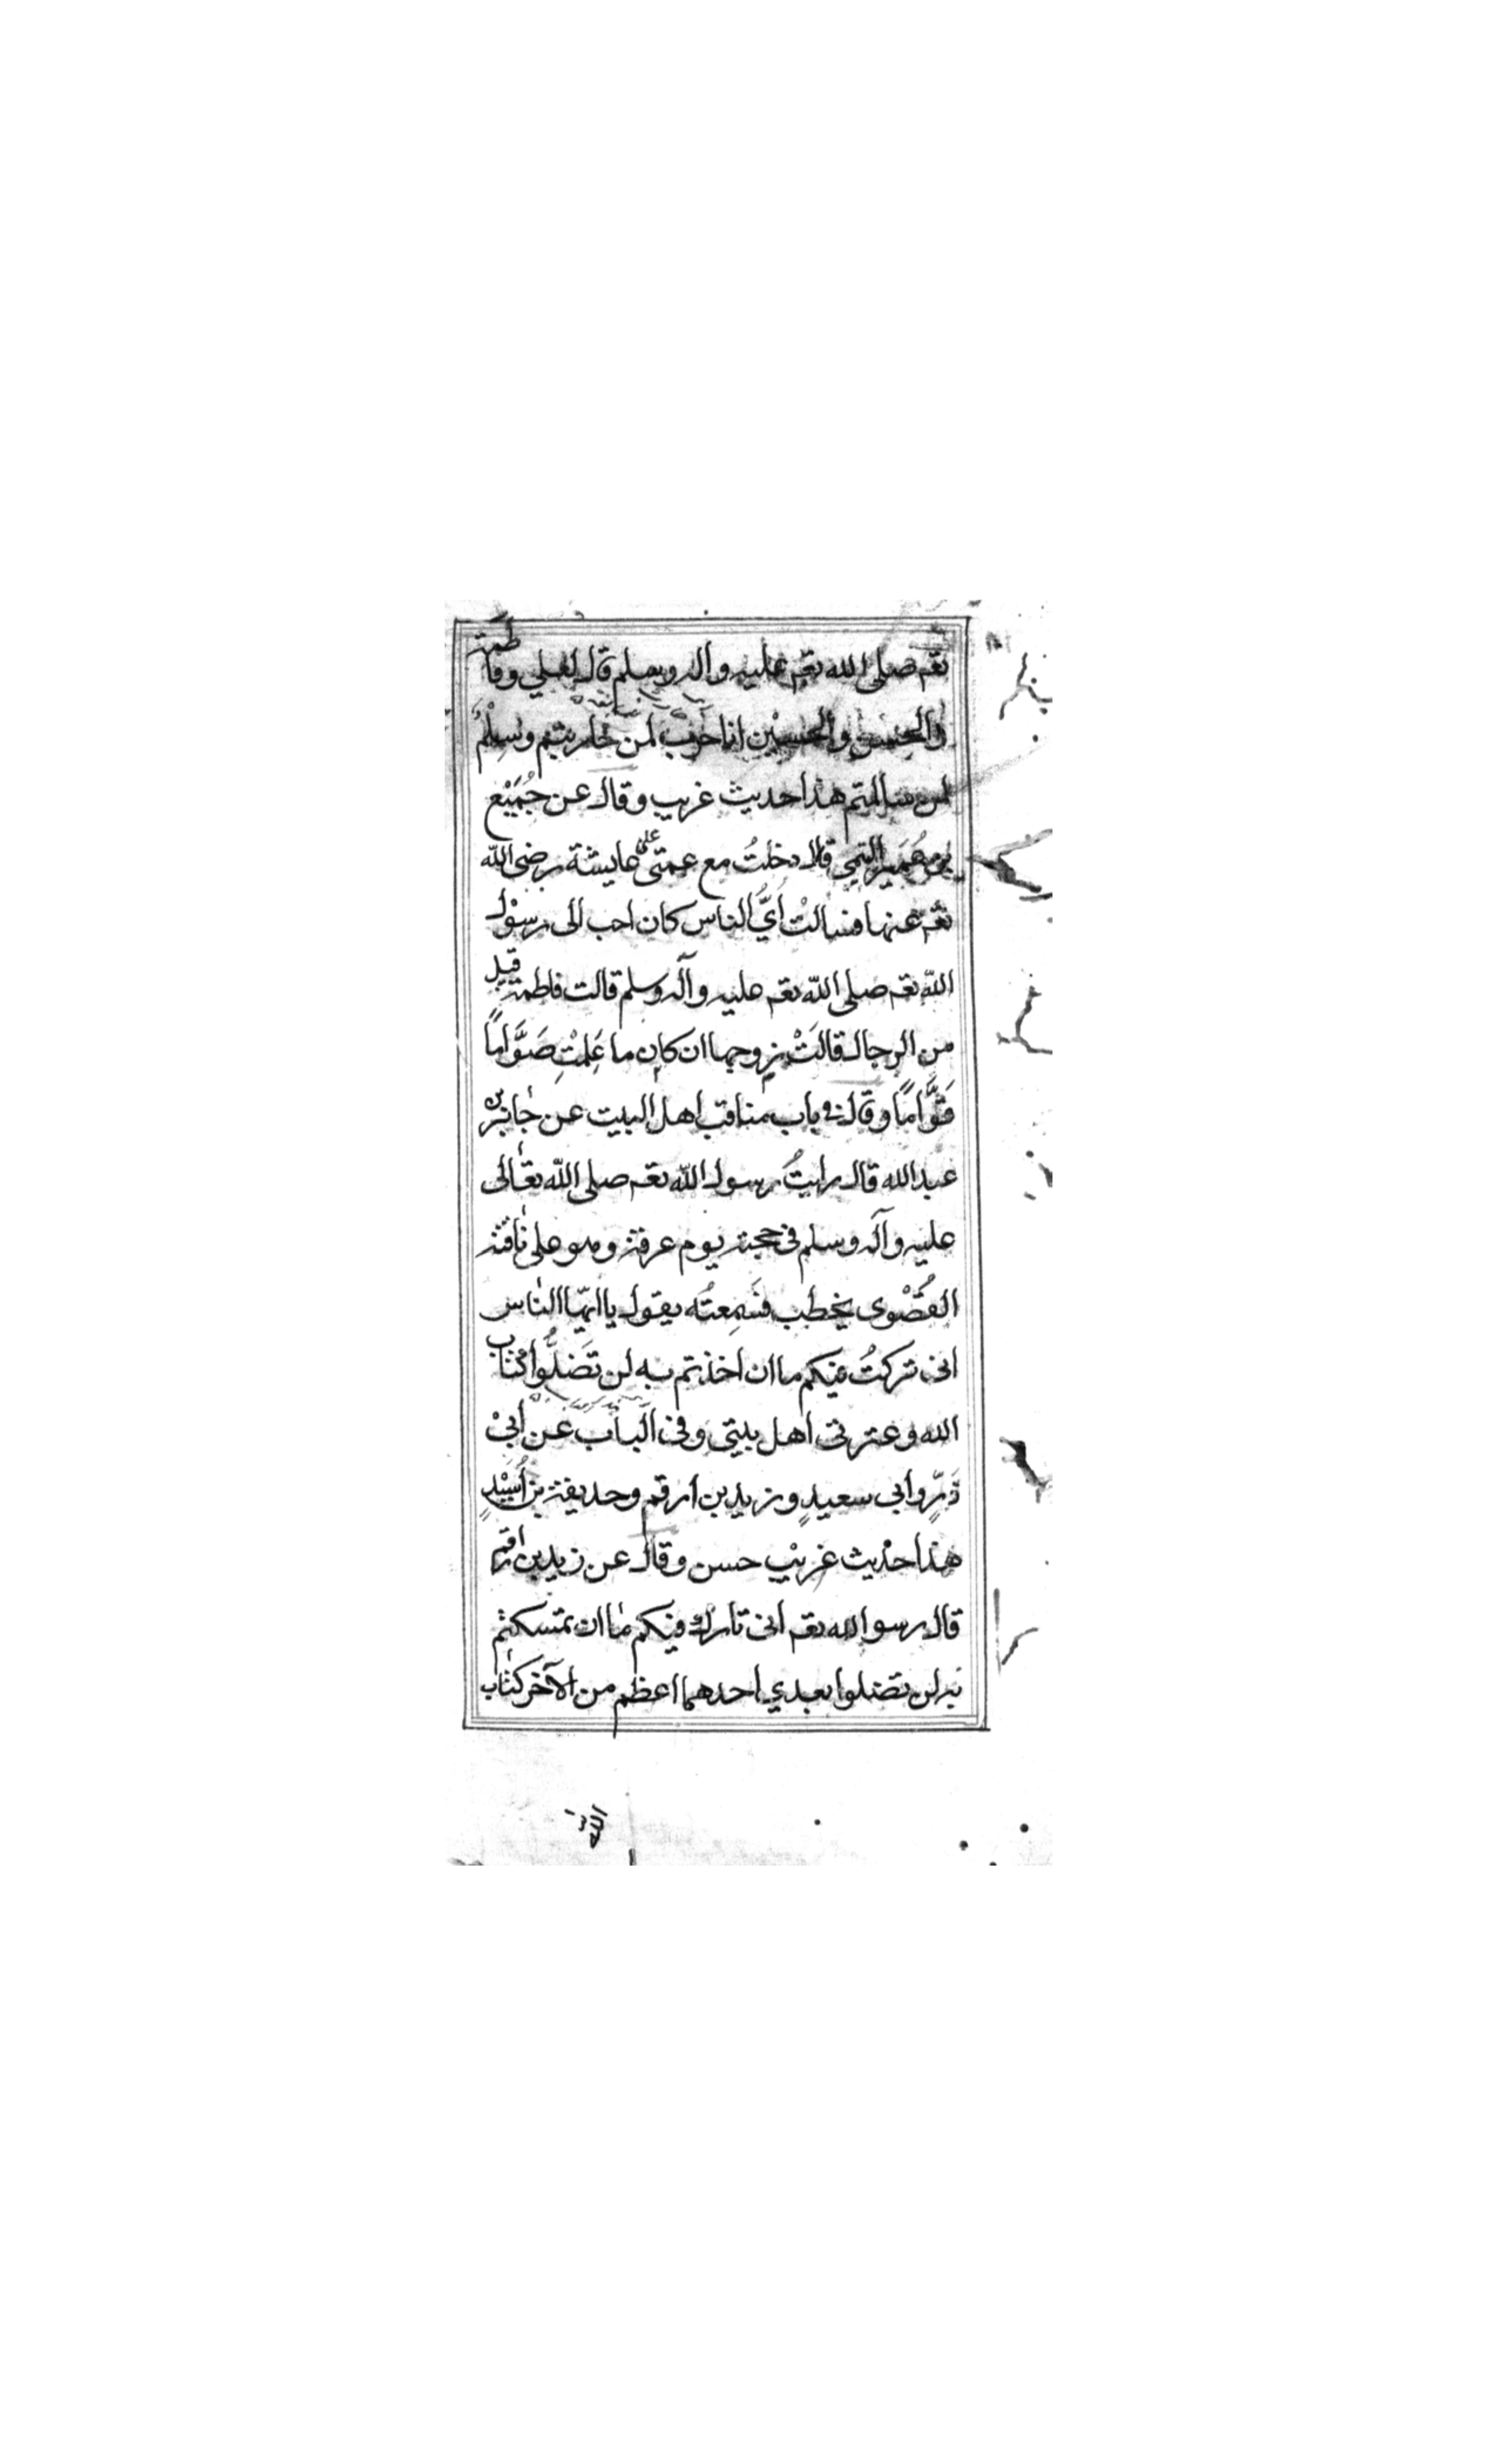 تعه صلى الله تعه عليه واله وسلم قال لعلي وفاطمة
والحسن والحسين انا حرب لمن حاربتم وسِلْمٌ
لمن سالمتم هذا حديث غريب وقال عن جُمَيْع
بن عُمَير التيمي قال دخلتُ مع عمتى على عايشة رضى الله
تعه عنها فسالتْ اَيُّ الناس كان احب الى رسول
الله تعه صلى الله تعه عليه وآله وسلم قالت فاطمة قيل
من الرجال قالَتْ زوجها ان كان ما عَلِمْتِ صَوَّامًا
قَوَّامًا وقال فى باب مناقب اهل البيت عن جابر بن
عبد الله قال رايتُ رسول الله تعه صلى الله تعالى
عليه وآله وسلم فى حجته يوم عرفة وهو على ناقته
القُصْوى يخطب فسَمِعتُه يقول يا ايّها الناس
انى تركتُ فيكم ما ان اخذتم به لن تَضلُّوا كتاب
الله وعترتى اهل بيتى وفى الباب عن أبىْ
ذَرٍّ وابى سعيدٍ وزيد بن ارقم وحذيفة بن اُسَيْدٍ
هذا حديث غريب حسن وقال عن زيد بن ارقم
قال رسو الله تعه انى تارك فيكم ما ان تمسكتم
به لن تضلوا بعدي احدهما اعظم من الآخر كتاب
الله